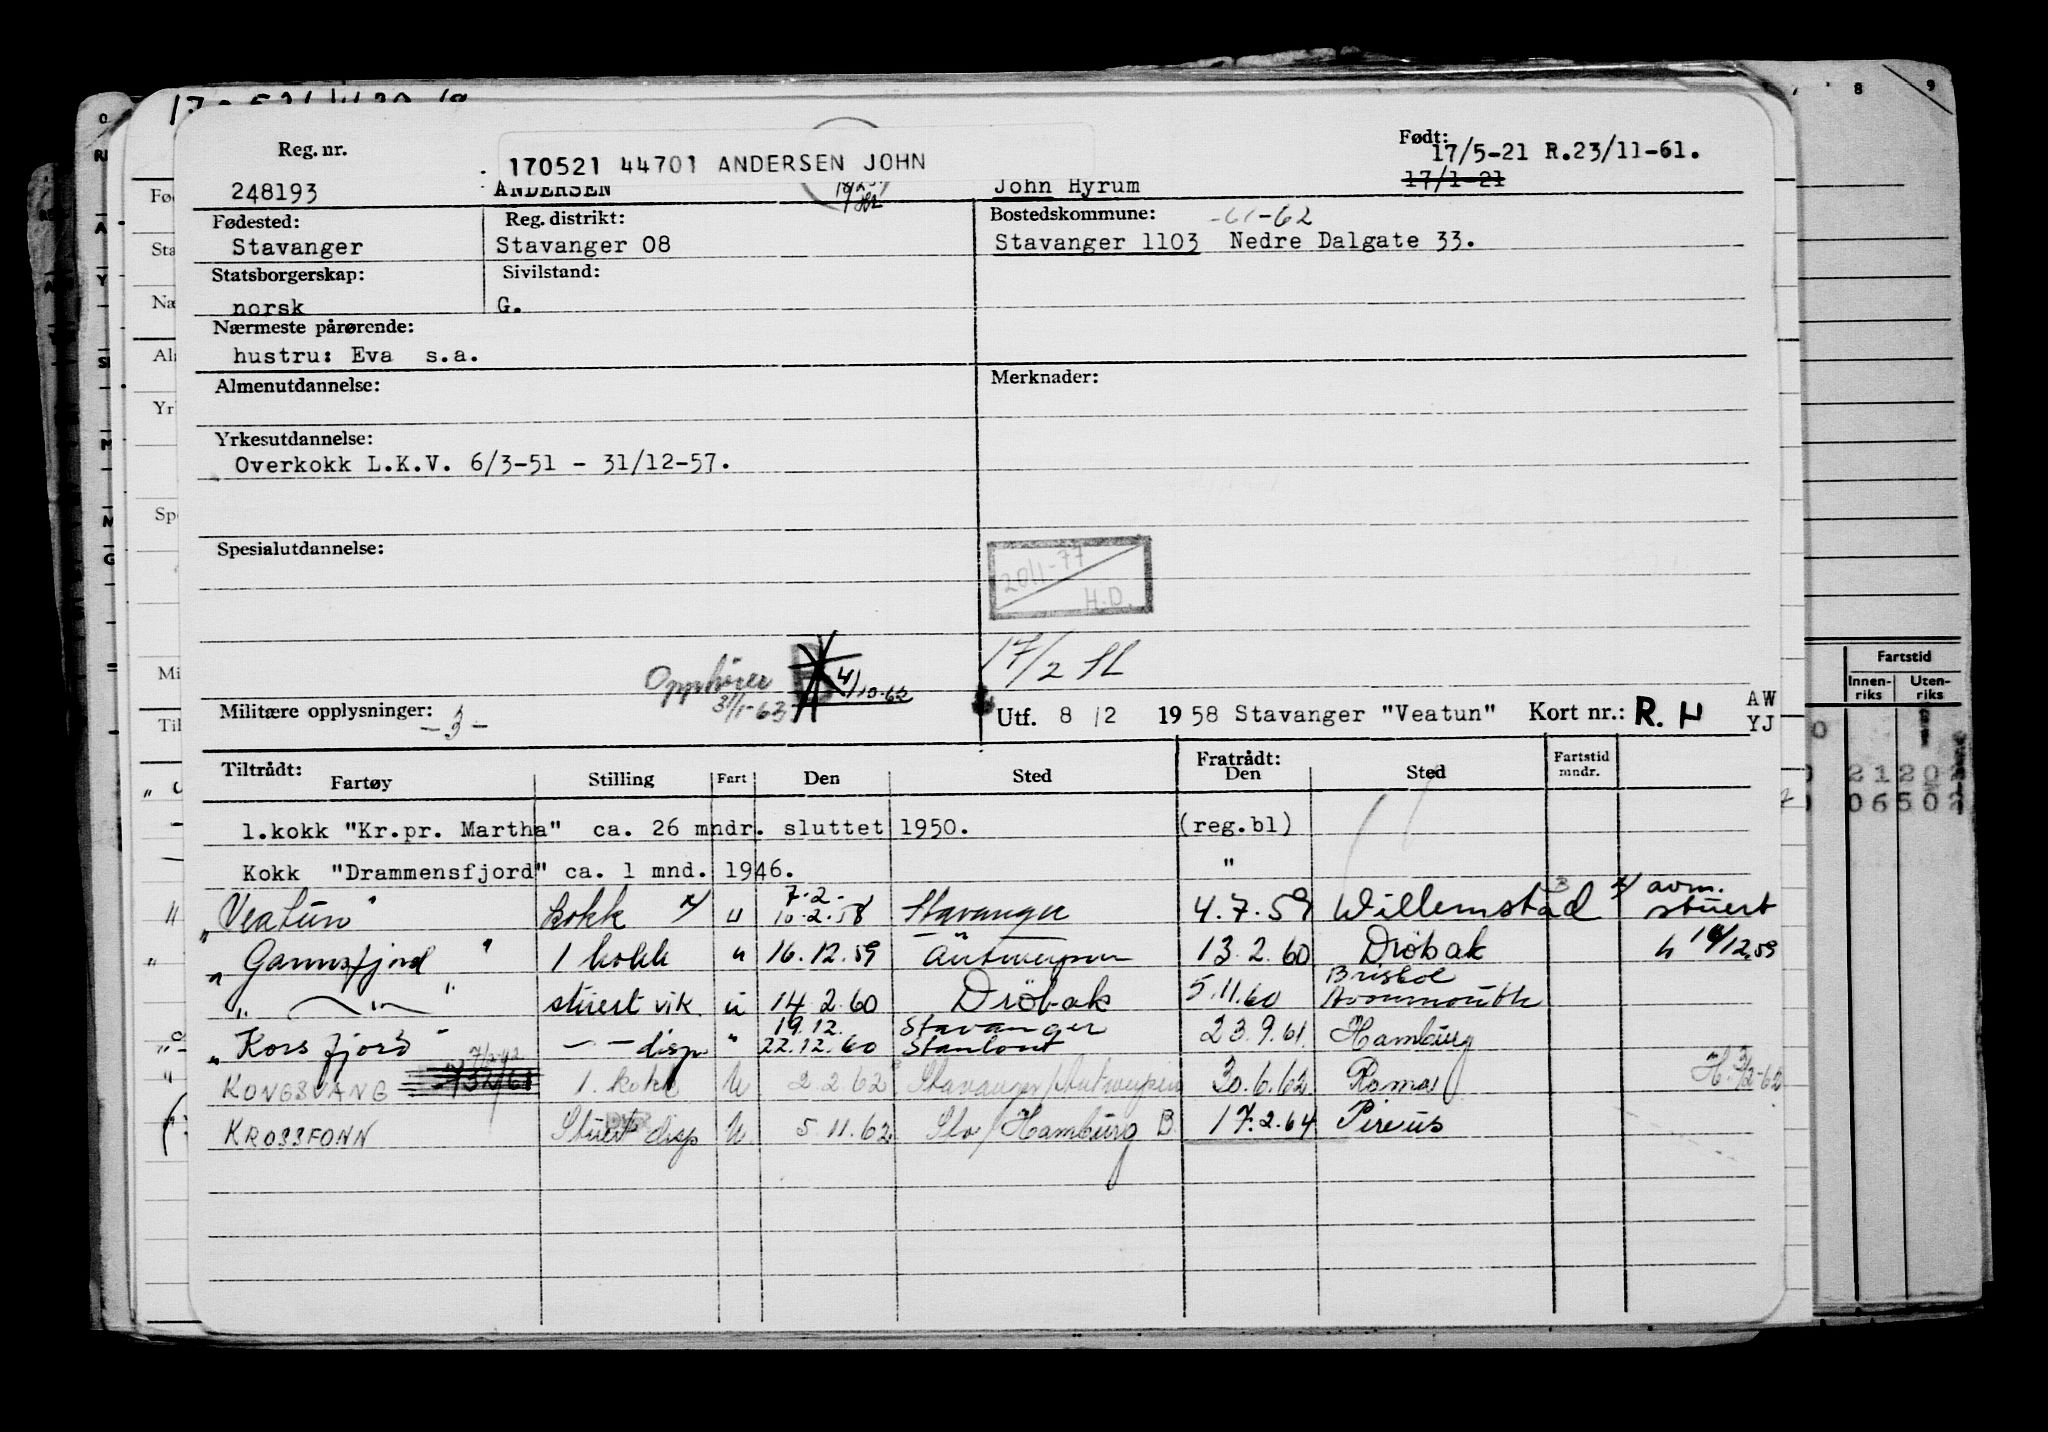 Reg. nr.
Født:
170521 44701 ANDERSEN JOHN
17/5-21 R.23/11-61.
248193 ANDERSEN John Hyrum 17/1-21
Fødested: Reg. distrikt: Bostedskommune: -61-62
Stavanger Stavanger 08 Stavanger 1103 Nedre Dalgate 33.
Statsborgerskap: Sivilstand:
norsk G.
Nærmeste pårørende:
hustru: Eva s.a.
Almenutdannelse: Merknader:
Yrkesutdannelse:
Overkokk L.K.V. 6/3-51 - 31/12-57.
Spesialutdannelse:
20/1-77
H.D.
Opphører 4/10-62 17/2 
31/1-63
Militære opplysninger: -3- Utf. 8/2 1958 Stavanger "Veatun" Kort nr.: R. H AW
YJ
Tiltrådt: Fratrådt:
Fartøy Stilling Fart Den Sted Den Sted Fartstid mndr.
1.kokk "Kr.pr. Martha" ca. 26 mndr. sluttet 1950. (reg.bl)
Kokk "Drammensfjord" ca. 1 mnd. 1946. "
7-2- avm.
"Veatun" kokk x/ u 10-2.58 Stavanger 4.7.59 Willemstad x/ stuert
"Gannsfjord" 1 kokk " 16.12.59 Antwerpen 13.2.60 Drøbak h 16/12.59
Bristol
" — " — " stuert vik. u 14.2.60 Drøbak 5.11.60 Avonmouth
19.12. Stavanger
"Korsfjord" — — disp " 22.12.60 Stanlowt 23.9.61. Hamburg
KONGSVANG 1. kokk U 2.2.62 Stavanger/Antwerpen 30.6.62 Roma H. 3/2-62
KROSSFONN Stuert disp U 5.11.62 Slv/Hamburg B 17.2.64 Pireus
Fartstid
Innen-
riks
Uten-
riks
2120
06502